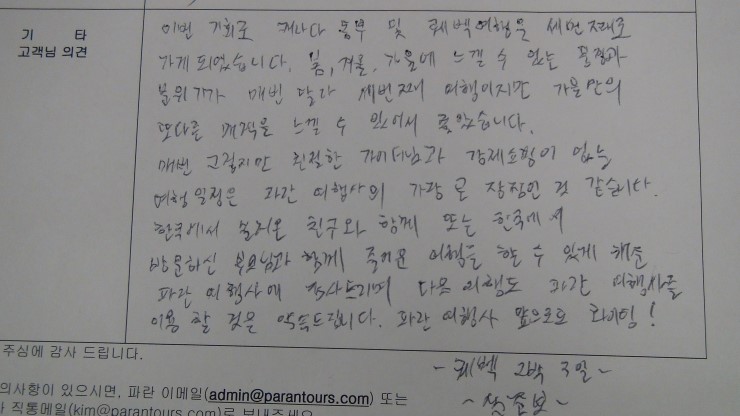 기 타
고객님 의견
이번 기회로 캐나다 동부 및 퀘벡여행을 세번째로
가게 되었습니다. 봄, 겨울, 가을에 느낄 수 있는 풍경과
분위기가 매번 달라 세번째 여행이지만 가을만의
또다른 매력을 느낄 수 있어서 좋았습니다.
매번 그렇지만 친절한 가이더님과 강제쇼핑이 없는
여행일정은 파란 여행사의 가장 큰 장점인 것 같습니다.
한국에서 놀러온 친구와 함께 또는 한국에서
방문하신 부모님과 함께 즐거운 여행을 할 수 있게 해준
파란 여행사에 감사드리며 다음 여행도 파란 여행사를
이용 할 것을 약속드립니다. 파란 여행사 앞으로도 화이팅!
주심에 감사 드립니다.
~ 퀘벡 2박 3일 ~
의사항이 있으시면, 파란 이메일(admin@parantours.com) 또는
직통메일(kim@parantours.com)로 보내주세요